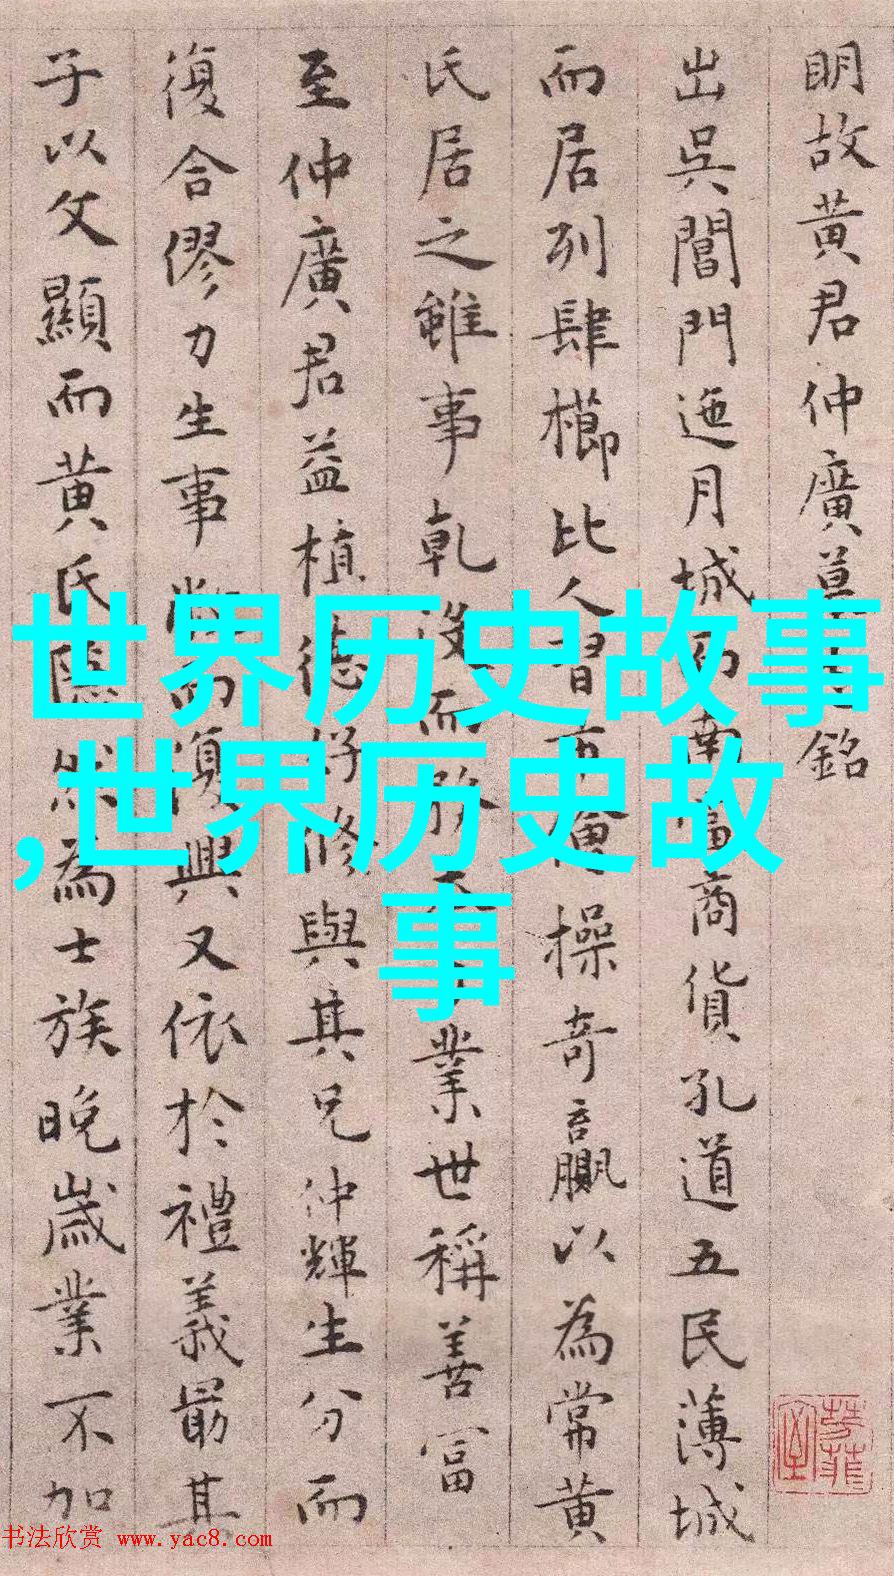 明故黄君仲廣墓銘
出吳閶門迤月城而南富商貨孔道五民薄城
而居列肆櫛比人習市儈操奇贏以為常黄
氏居之雖事乾没而敦業世稱善富
至仲廣君益植德好修與其兄仲輝生分而
復合僇力生事幣而復興又依於禮義最其
子以文顯而黄氏隱然為士族晚歲業不加
世界历史故事
,世界历史故
事
书法欣赏 www.yac8.com